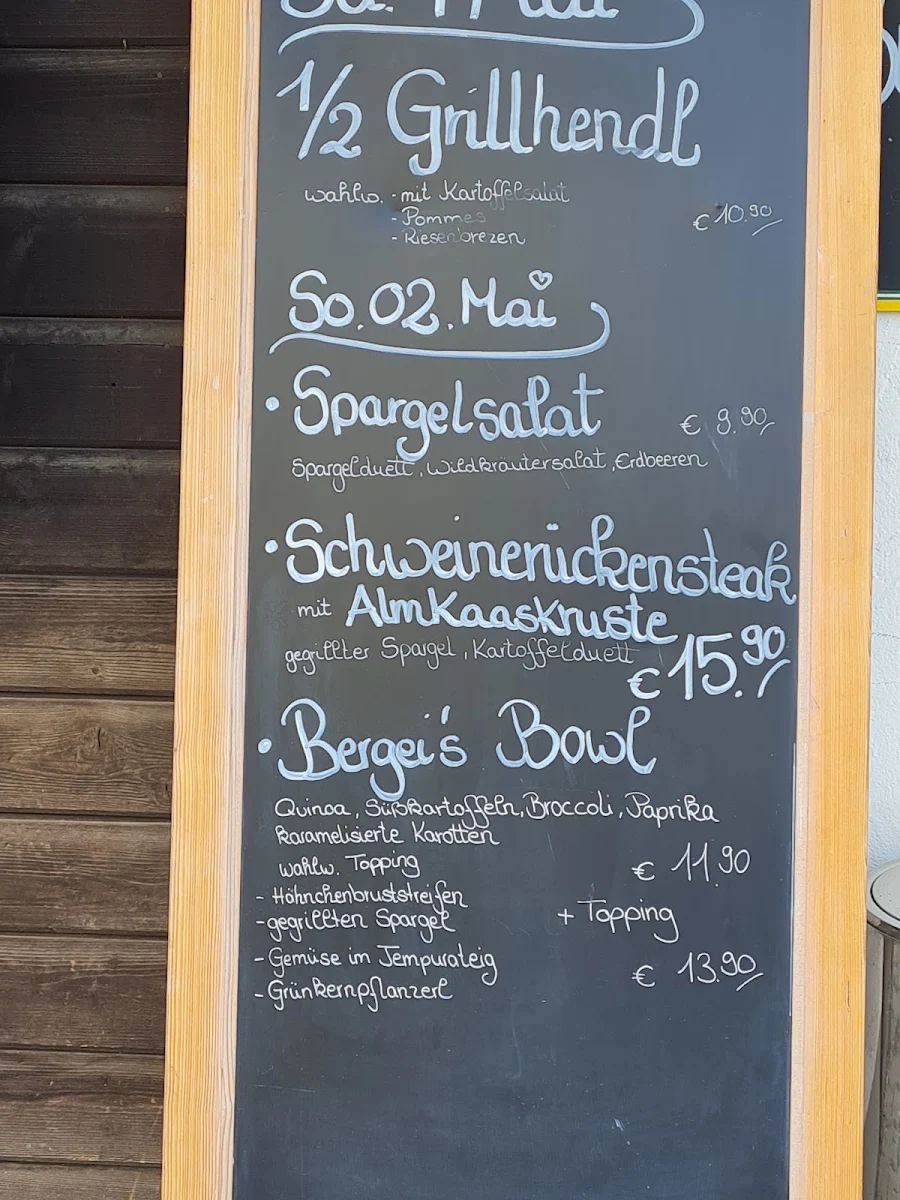 1/2 Grillhendl
wahlw. - mit Kartoffelsalat
- Pommes
- Riesenbrezen
€ 10.90
So. 02. Mai
• Spargelsalat € 9.90
Spargelduett, Wildkräutersalat, Erdbeeren
• Schweinerückensteak
mit AlmKaasKruste
gegrillter Spargel, Kartoffelduett
€ 15.90
• Bergei's Bowl
Quinoa, Süßkartoffeln, Broccoli, Paprika
karamelisierte Karotten
wahlw. Topping € 11.90
- Höhnchenbruststreifen
- gegrillten Spargel + Topping
- Gemüse im Tempurateig € 13.90
- Grünkernpflanzerl